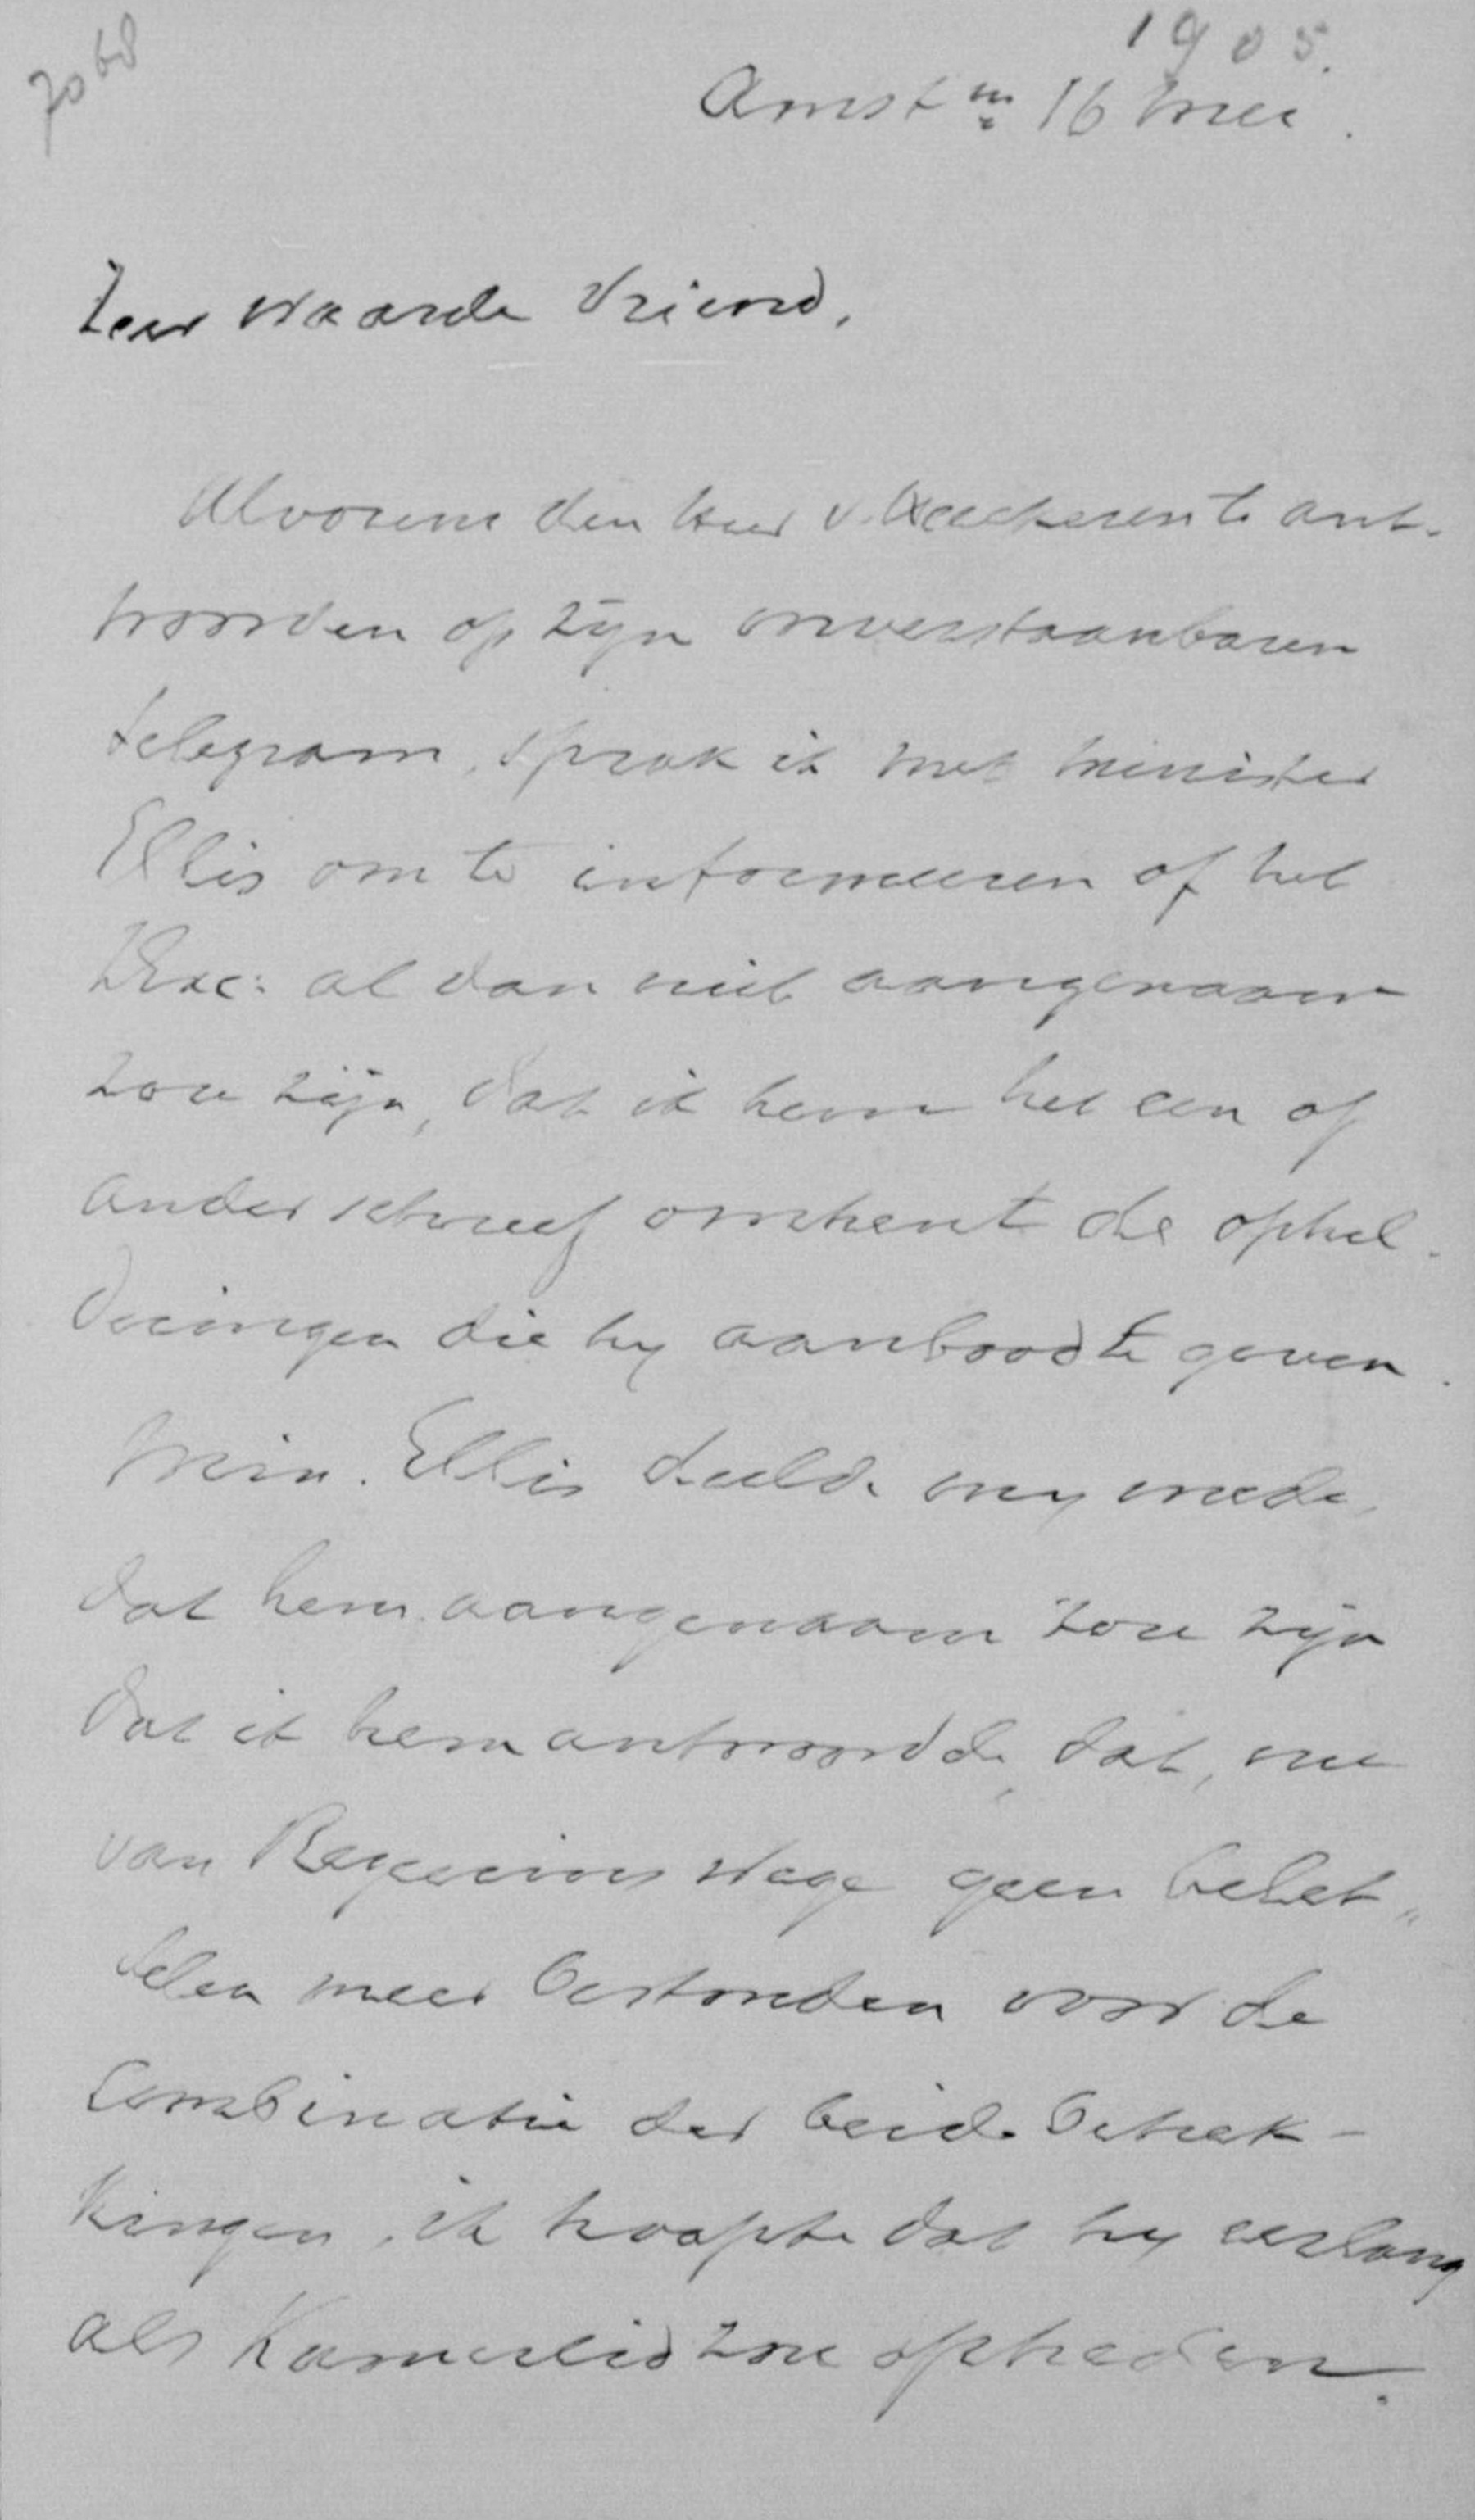 7068
1905.
Amstm 16 Mei.
Zeer waarde Vriend,
Alvorens den heer v. Heeckeren te ant-
woorden op zijn onverstaanbaren
telegram, sprak ik met Minister
Ellis om te informeeren of het
ZExc: al dan niet aangenaam
zou zijn, dat ik hem het een of
ander schreef omtrent de ophel-
deringen die hy aanbood te geven.
Min. Ellis deelde my mede,
dat hem aangenaam zou zijn
dat ik hem antwoordde, dat, nu
van Regeerings wege geen belet„
selen meer bestonden voor de
combinatie der beide betrek-
kingen, ik hoopte dat hy eerlang
als Kamerlid zou optreden.